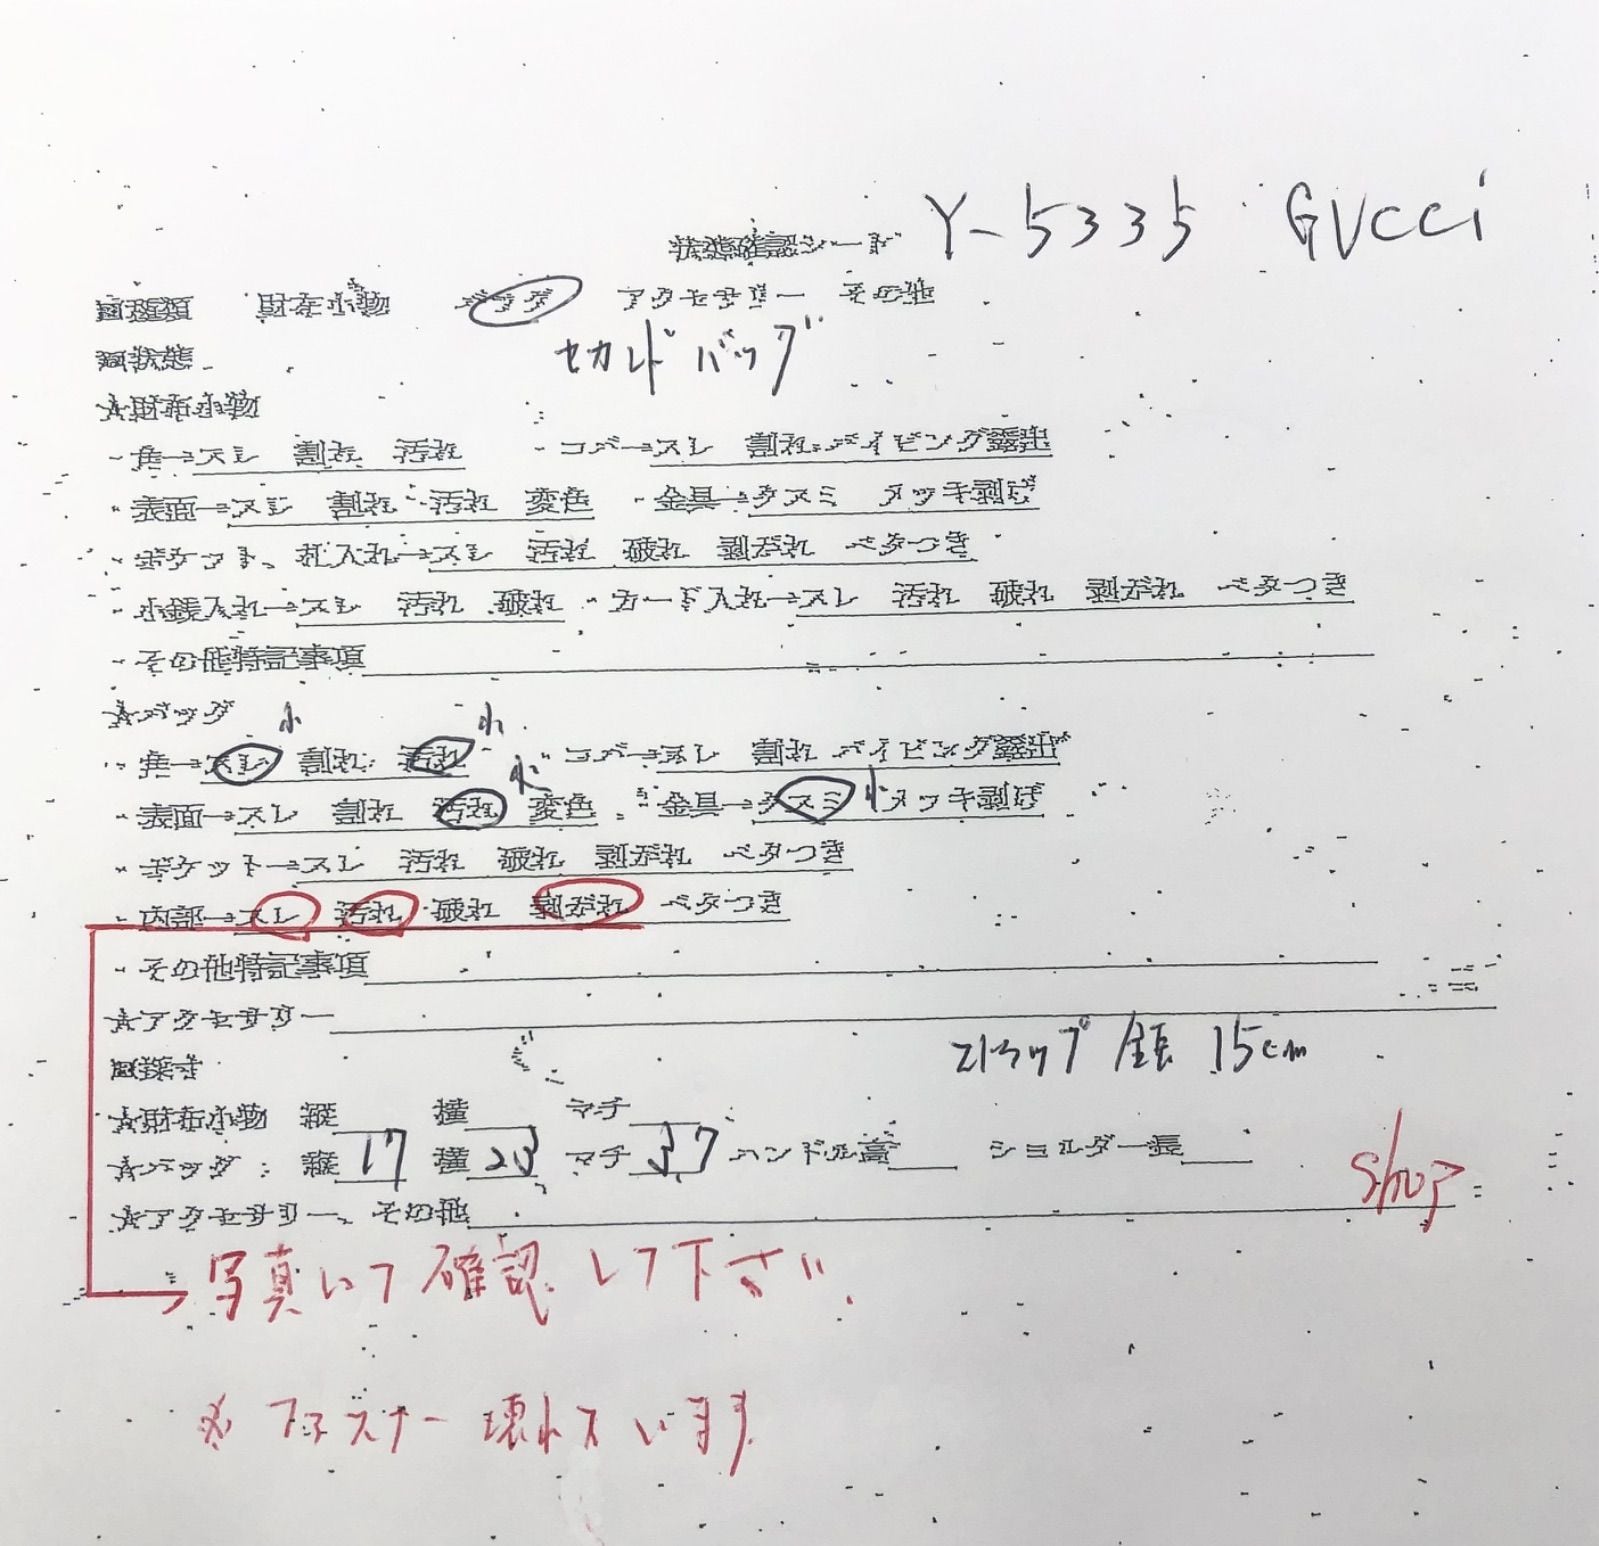 状態確認シート Y-5335 GUCCI
■種類 財布小物 バッグ アクセサリー その他
■状態 セカンドバッグ
★財布小物
・角→スレ 割れ 汚れ ・コバ→スレ 割れ パイピング露出
・表面→スレ 割れ 汚れ 変色 ・金具→クスミ メッキ剥げ
・ポケット、札入れ→スレ 汚れ 破れ 剥がれ ベタつき
・小銭入れ→スレ 汚れ 破れ ・カード入れ→スレ 汚れ 破れ 剥がれ ベタつき
・その他特記事項
★バッグ 小 小
・角→スレ 割れ 汚れ ・コバ→スレ 割れ パイピング露出
・表面→スレ 割れ 汚れ 小 変色 ・金具→クスミ 小 メッキ剥げ
・ポケット→スレ 汚れ 破れ 剥がれ ベタつき
・内部→スレ 汚れ 破れ 剥がれ ベタつき
・その他特記事項
★アクセサリー
■採寸 ストラップ 全長 15cm
★財布小物 縦 横 マチ
★バッグ : 縦 17 横 23 マチ 3.7 ハンドル高 ショルダー長
★アクセサリー、その他 shop
→写真にて確認して下さい.
※ファスナー壊れています